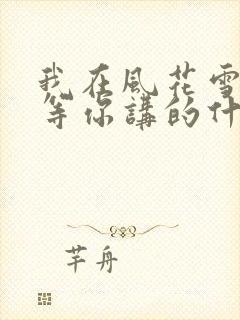 我在風花雪
等你講的什
芊舟